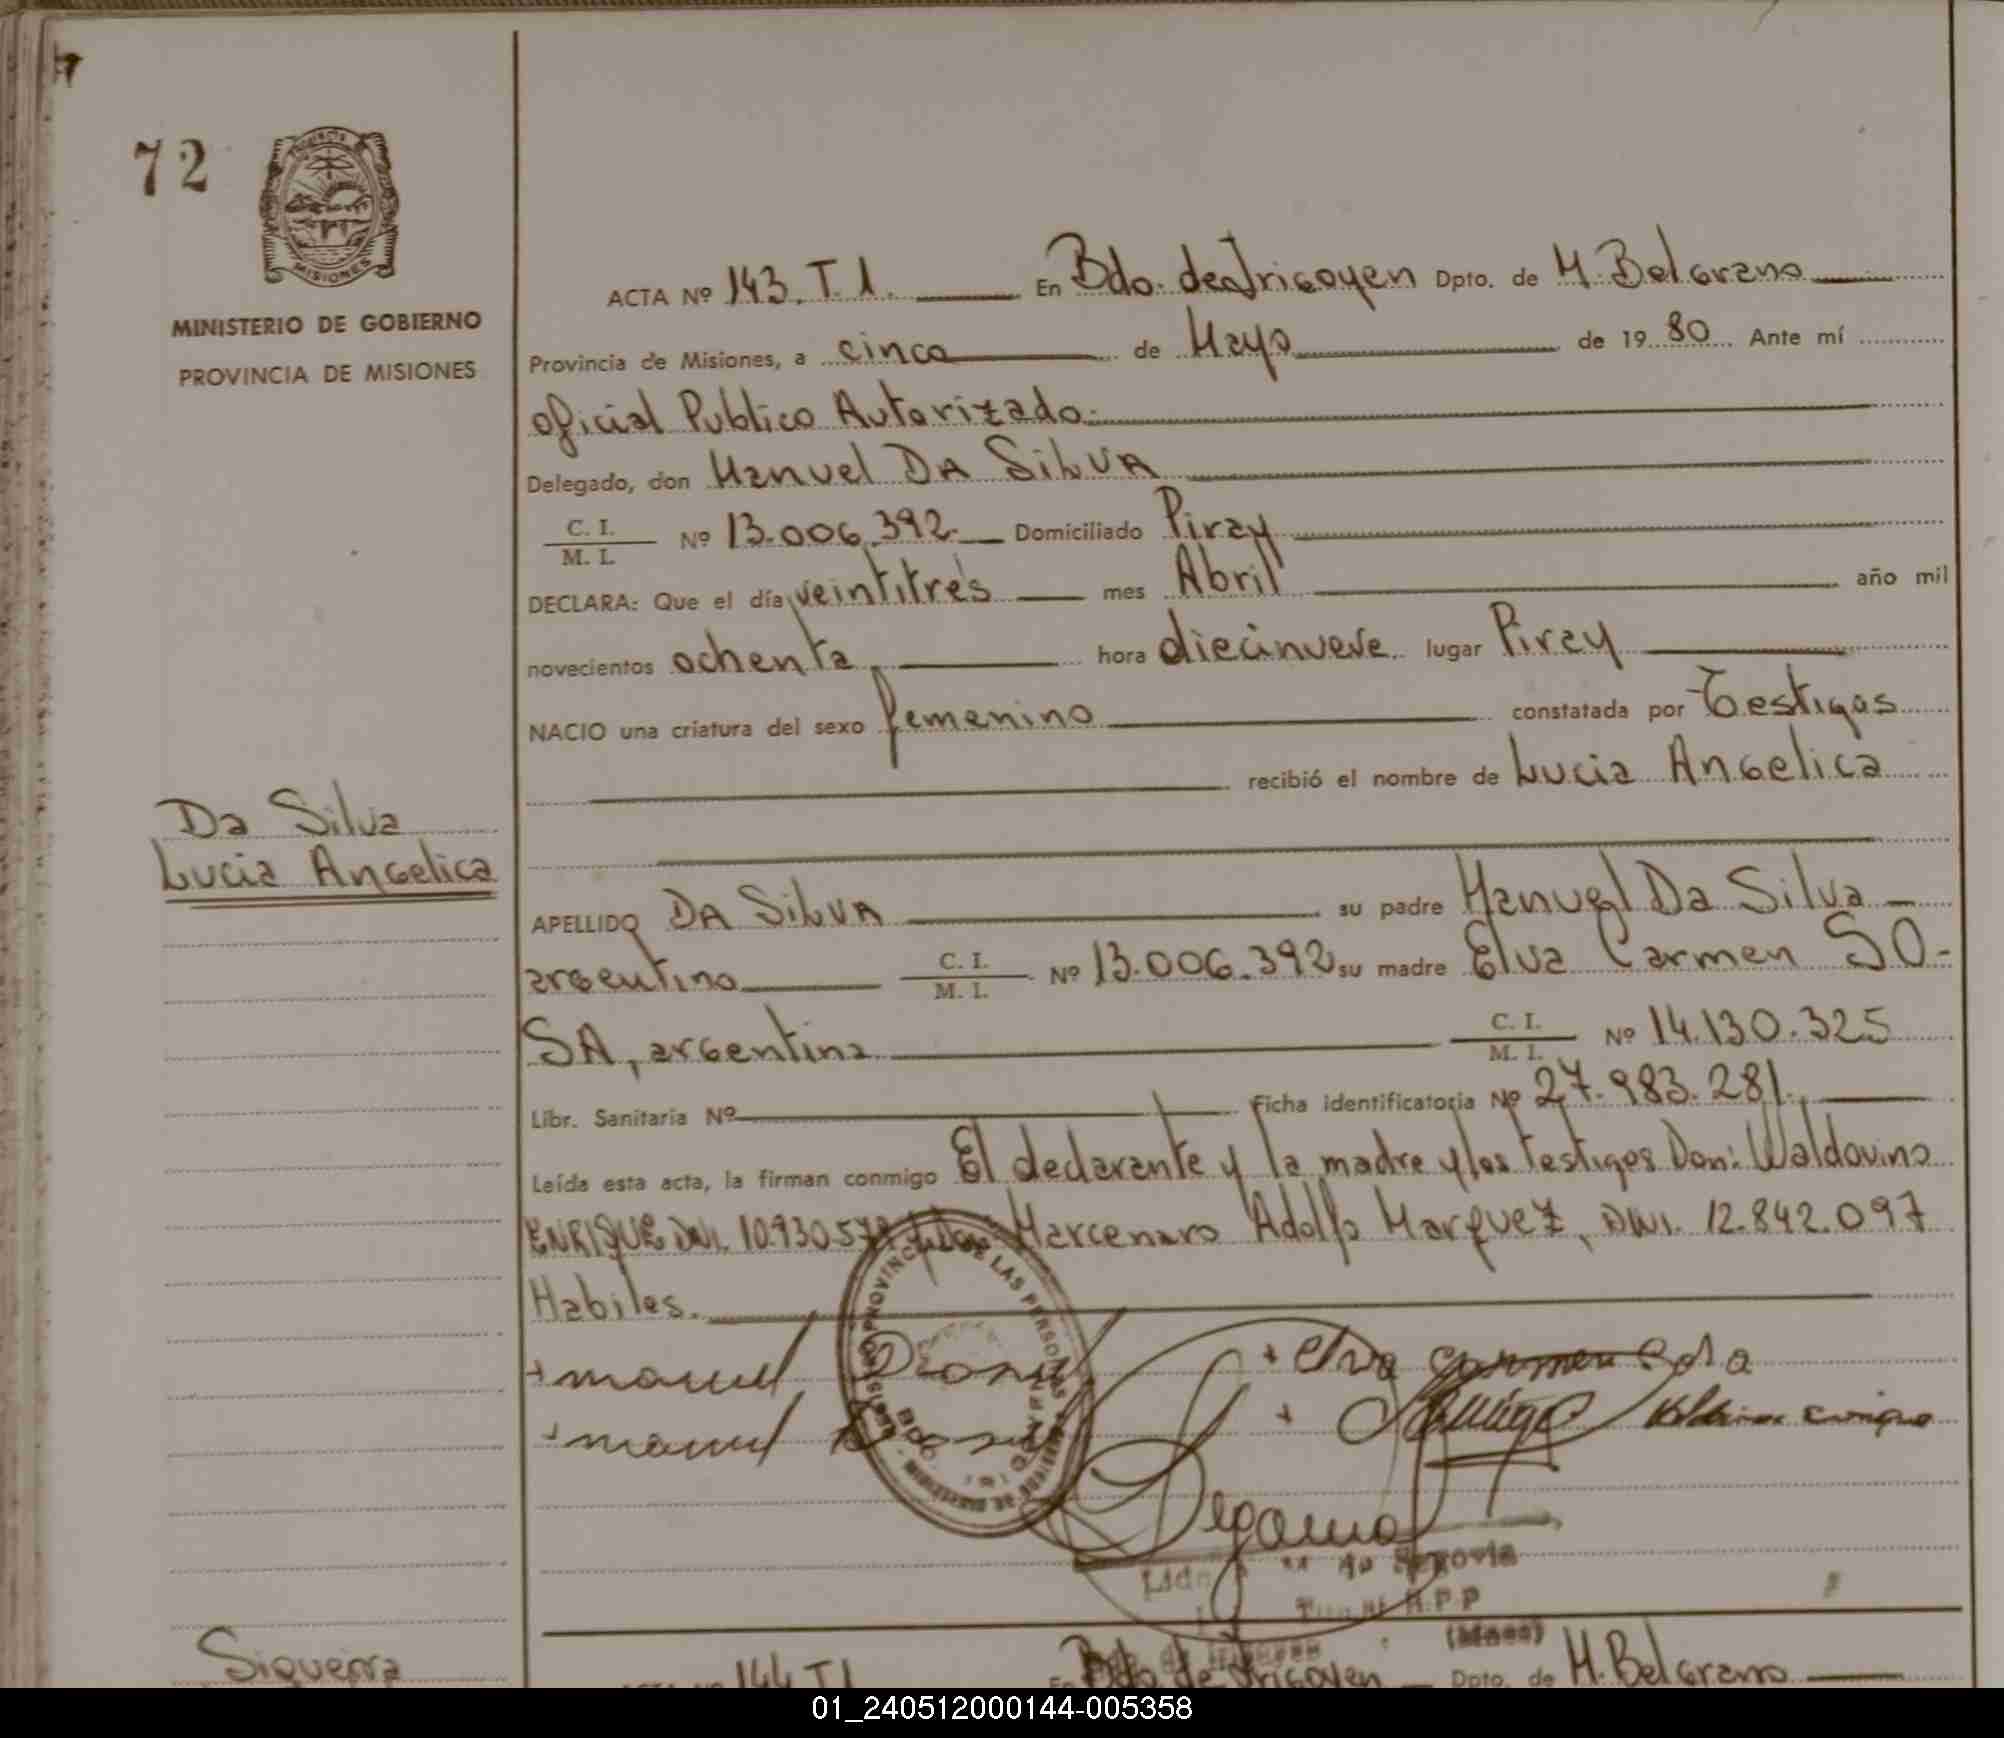 72
PROVINCIA
MISIONES
MINISTERIO DE GOBIERNO
PROVINCIA DE MISIONES
ACTA Nº 143. T. 1. En Bdo. de Irigoyen Dpto. de M. Belgrano
Provincia de Misiones, a cinco de Mayo de 19 80 Ante mí
oficial Publico Autorizado.
Delegado, don Manuel DA SILVA
C. I. / M. I. Nº 13.006.392 Domiciliado Piray
DECLARA: Que el día veintitrés mes Abril año mil
novecientos ochenta hora diecinueve lugar Piray
NACIO una criatura del sexo femenino constatada por Testigos
recibió el nombre de Lucia Angelica
Da Silva
Lucia Angelica
APELLIDO DA SILVA su padre Manuel Da Silva
argentino C. I. / M. I. Nº 13.006.392 su madre Elva Carmen SO-
SA, argentina C. I. / M. I. Nº 14.130.325
Libr. Sanitaria Nº Ficha identificatoria Nº 27.983.281.
Leída esta acta, la firman conmigo El declarante y la madre y los testigos Don: Waldovino
ENRIQUE DNI. 10.930.57 y Don Marcenaro Adolfo Marquez, DNI. 12.842.097
Habiles.
PROVINCIA DE LAS PERSONAS
+ manuel
+ Elva Carmen
+ manuel
+ enrique
Segovia
R.P.P
(Mnes)
Siqueira
ACTA Nº 144 T1 En Bdo. de Irigoyen Dpto. de M. Belgrano
01_240512000144-005358